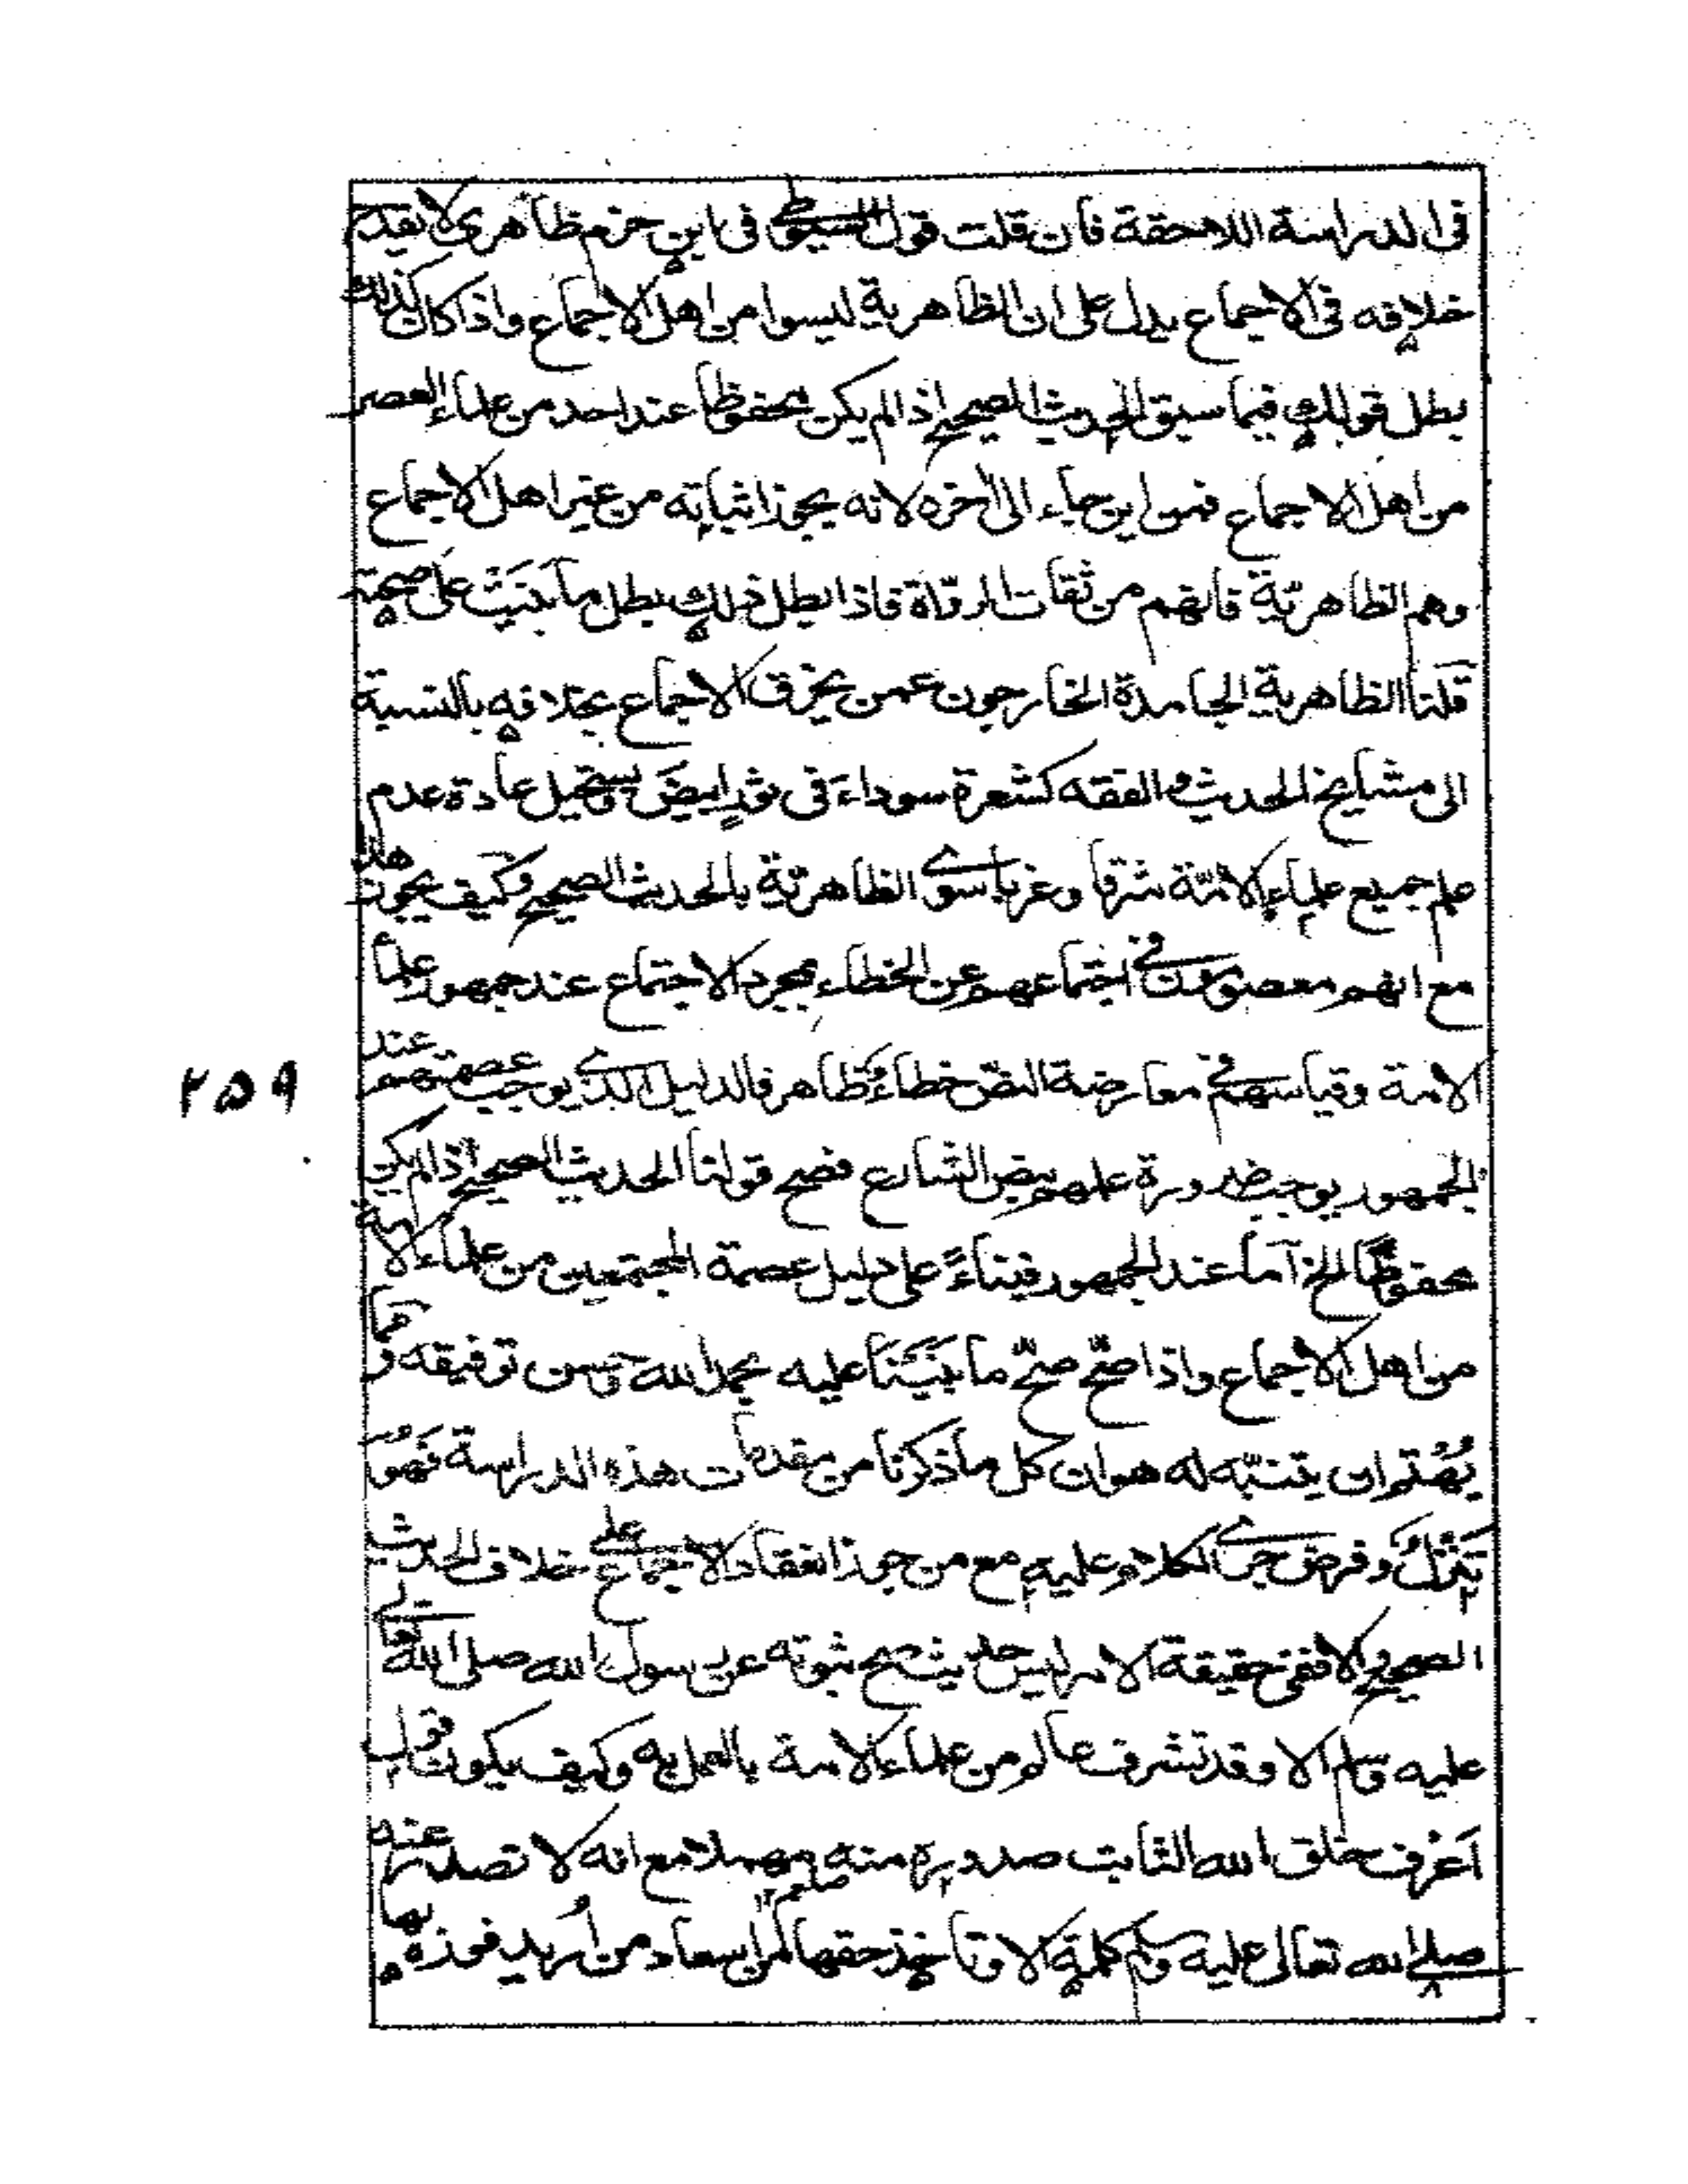 فى الدراسة اللاحقة فان قلت قول السيوطى فى ابن حزم ظاهرى لا يقدم
خلافه فى الاجماع يدل على ان الظاهرية ليسوا من اهل الاجماع واذا كان كذلك
بطل قولك فيما سبق الحديث الصحيح اذا لم يكن محفوظا عند احد من علماء العصر
من اهل الاجماع فمن اين جاء الى اخره لانه يجوز اثباته من غير اهل الاجماع
وهم الظاهريّة فانهم من ثقات الروّاة فاذا بطل ذلك بطل ما بَنَيْتَ على صحته
قلنا الظاهرية الجامدة الخارجون عمن يخرق الاجماع بخلافه بالنسبة
الى مشايخ الحديث والفقه كشعرة سوداءَ فى ثورٍ ابيضَ يستحيل عادة عدم
علم جميع علماء الامّة شرقا وغربا سوى الظاهريّة بالحديث الصحيح وكيف يجوز هذا
مع انهم معصومون فى اجتماعهم عن الخطاء بمجرد الاجتماع عند جمهور علماء
الامة وقياسهم فى معارضة النصّ خطاءٌ ظاهر فالدليل الذى يوجب عصمتهم عند
الجمهور يوجب ضرورة علمهم بنص الشارع فصح قولنا الحديث الصحيح اذا لم يكن
محفوظًا الخ اما عند الجمهور فبناءً على دليل عصمة المجتمعين من علماء الامة
من اهل الاجماع واذا صحّ صحّ ما بَنَيْنَا عليه بحمد الله وحسن توفيقه ومما
يُهْتَمُّ ان يتنبّه له هو ان كل ما ذكرنا من مقدمات هذه الدراسة فهُوَ
تَنَزُّلٌ وفرض جرى الكلام عليه مع من جوز انعقاد الاجماع على خلاف الحديث
الصحيح والا ففى حقيقة الامر ليس حديث صح ثبوته عن رسول الله صلى الله تعالى
عليه وسلم الا وقد تشرف عالم من علماء الامة بالعمل به وكيف يكون قول
اَعْرف خلق الله الثابت صدوره منه مهملا مع انه لا تصدر عنه
صلعم ١٢
صلى الله تعالى عليه وسلم كلمة الا وتاخذ حقها من اسعاد من اُريد فوزه بها
٢٥٩